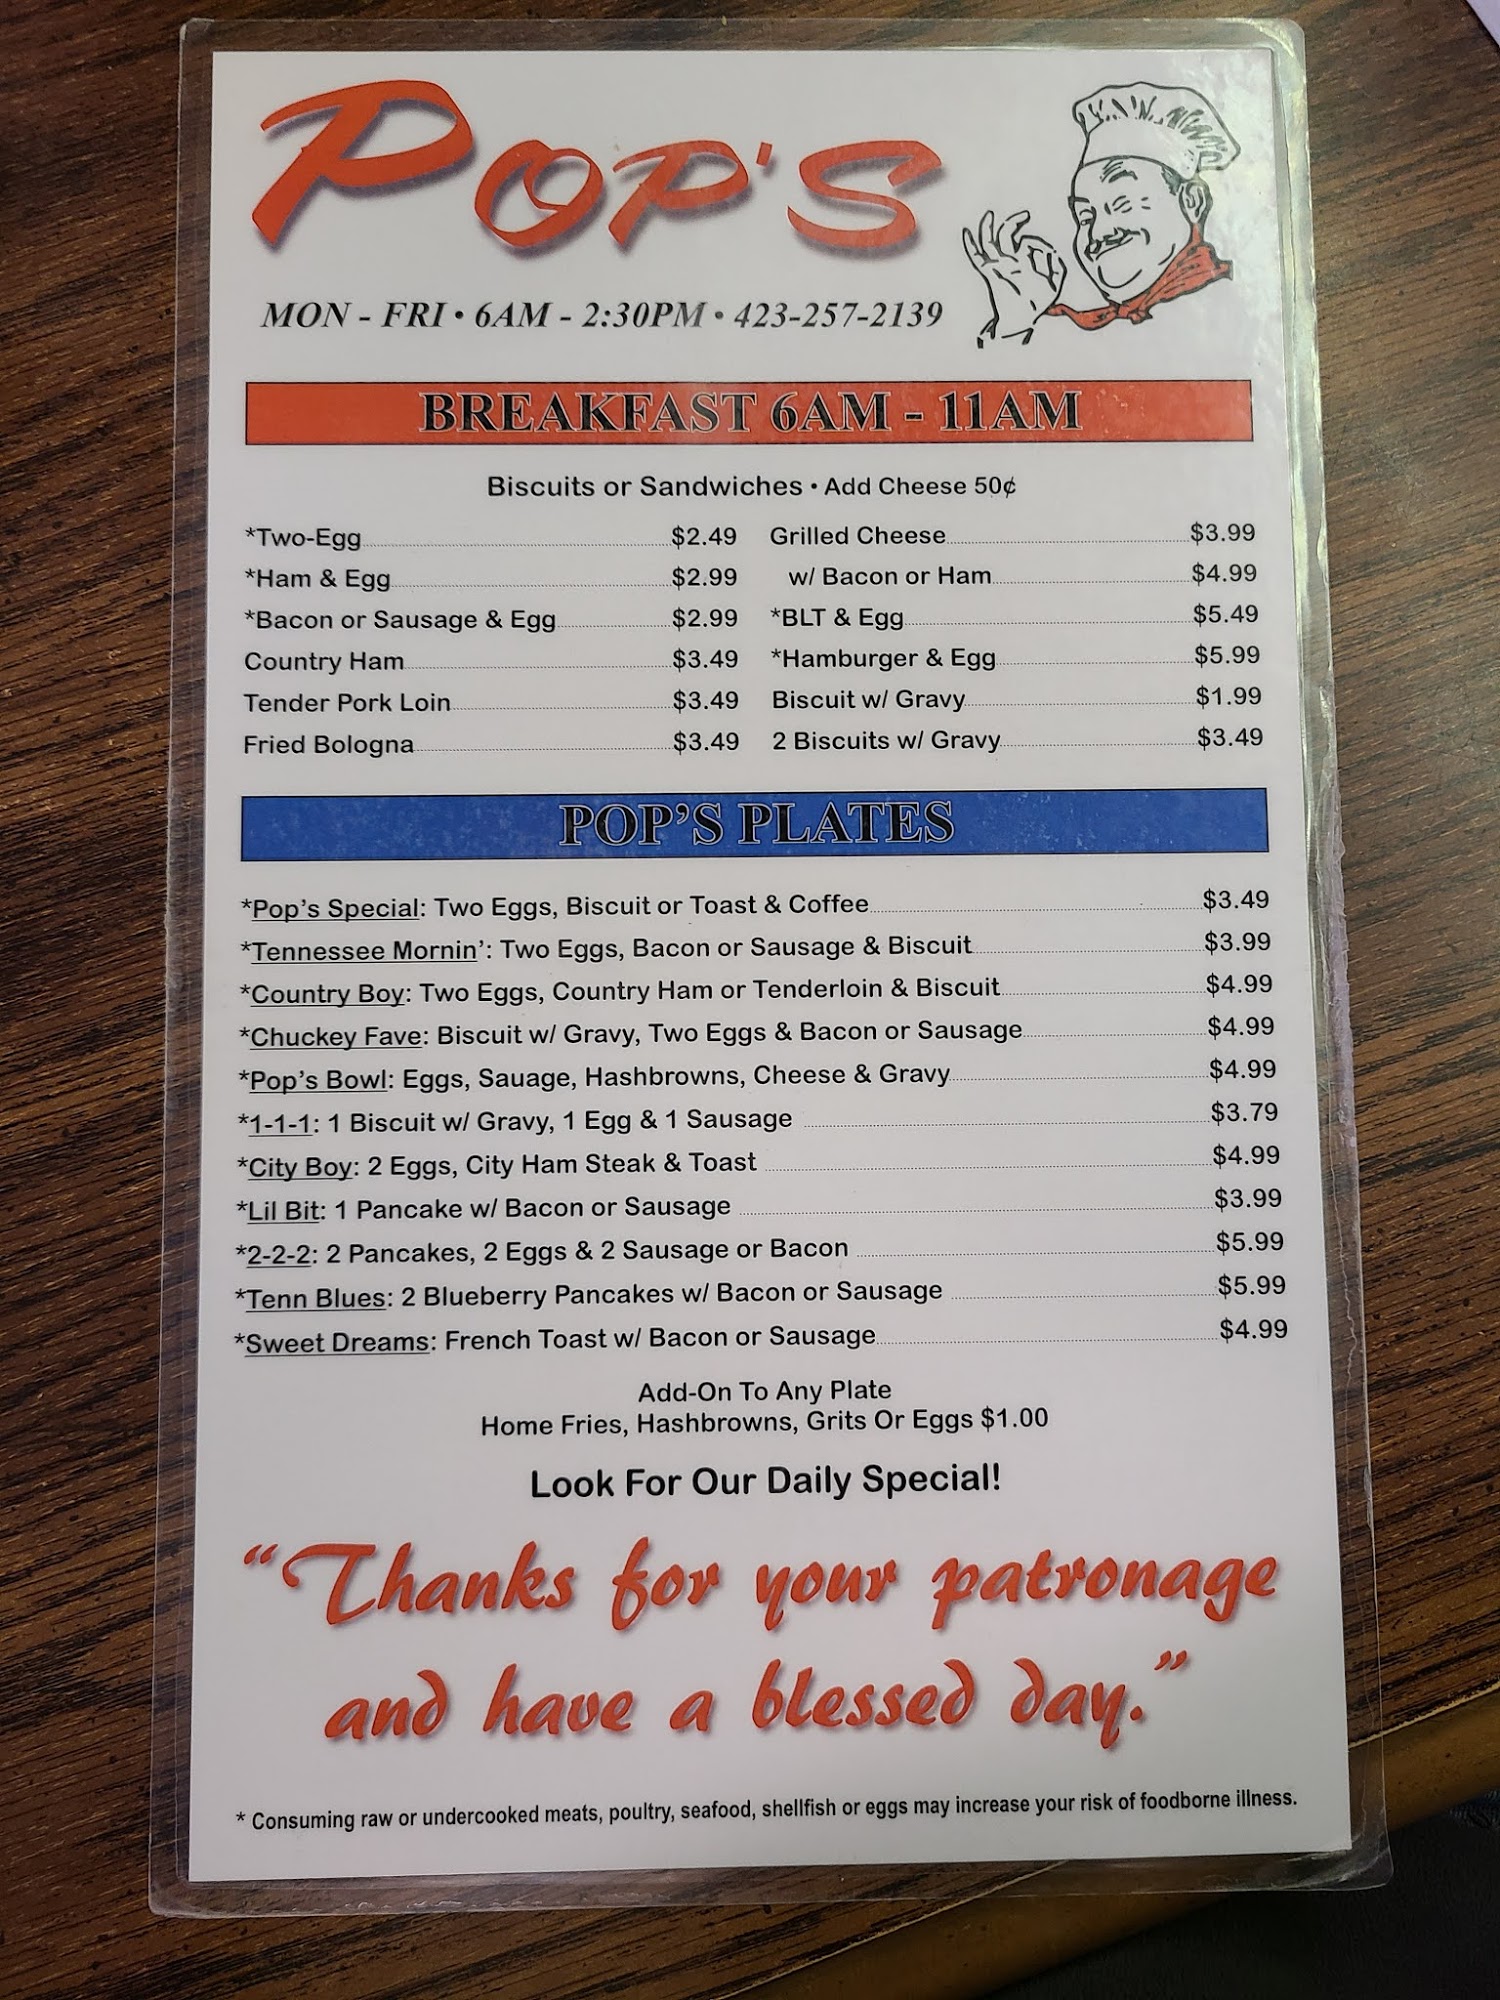 POP'S
MON - FRI • 6AM - 2:30PM • 423-257-2139
BREAKFAST 6AM - 11AM
Biscuits or Sandwiches • Add Cheese 50¢
*Two-Egg $2.49
*Ham & Egg $2.99
*Bacon or Sausage & Egg $2.99
Country Ham $3.49
Tender Pork Loin $3.49
Fried Bologna $3.49
Grilled Cheese $3.99
w/ Bacon or Ham $4.99
*BLT & Egg $5.49
*Hamburger & Egg $5.99
Biscuit w/ Gravy $1.99
2 Biscuits w/ Gravy $3.49
POP'S PLATES
*Pop's Special: Two Eggs, Biscuit or Toast & Coffee $3.49
*Tennessee Mornin': Two Eggs, Bacon or Sausage & Biscuit $3.99
*Country Boy: Two Eggs, Country Ham or Tenderloin & Biscuit $4.99
*Chuckey Fave: Biscuit w/ Gravy, Two Eggs & Bacon or Sausage $4.99
*Pop's Bowl: Eggs, Sauage, Hashbrowns, Cheese & Gravy $4.99
*1-1-1: 1 Biscuit w/ Gravy, 1 Egg & 1 Sausage $3.79
*City Boy: 2 Eggs, City Ham Steak & Toast $4.99
*Lil Bit: 1 Pancake w/ Bacon or Sausage $3.99
*2-2-2: 2 Pancakes, 2 Eggs & 2 Sausage or Bacon $5.99
*Tenn Blues: 2 Blueberry Pancakes w/ Bacon or Sausage $5.99
*Sweet Dreams: French Toast w/ Bacon or Sausage $4.99
Add-On To Any Plate
Home Fries, Hashbrowns, Grits Or Eggs $1.00
Look For Our Daily Special!
"Thanks for your patronage
and have a blessed day."
* Consuming raw or undercooked meats, poultry, seafood, shellfish or eggs may increase your risk of foodborne illness.